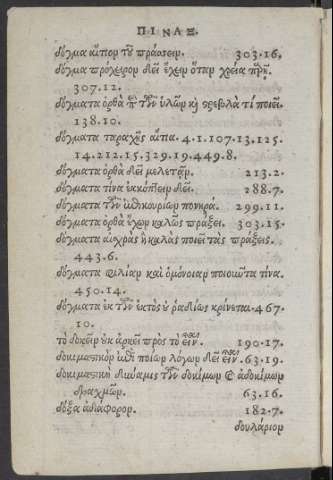 ΠΙΝΑΞ.
δόγμα αἴτιον τοῦ πράσσειν. 303.16.
δόγμα πρόχειρον δεῖ ἔχειν ὅταν χρεία
307.12.
δόγματα ὀρθὰ τῶν ὑλῶν κỳ στρεβολὰ τί ποιεῖ.
138.10.
δόγματα ταραχῆς αἴτια. 4.1.107.13.125.
14.212.15.329.19.449.8.
δόγματα ὀρθὰ δεῖ μελετᾷν. 213.2.
δόγματα τίνα ἐκκόπτειν δεῖ. 288.7.
δόγματα τῶν ἐπικουρίων πονηρά. 299.11.
δόγματα ὀρθὰ ἔχων καλῶς πράξει. 303.15.
δόγματα αἰσχρὰς ἢ καλὰς ποιεῖ τὰς πράξεις.
443.6.
δόγματα φιλίαν καὶ ὁμόνοιαν ποιοῦντα τίνα.
450.14.
δόγματα ἐκ τῶν ἐκτὸς ὐ ῥαδίως κρίνεται. 467.
10.
τὸ δοκεῖν ἐκ ἀρκεῖ πρὸς τὸ εἶναι. 190.17.
δοκιμαστικὸν ἐπὶ ποίων λόγων δεῖ εἶναι. 63.19.
δοκιμαστικὴ δύναμις τῶν δοκίμων ϗ ἀδοκίμων
δραχμῶν. 63.16.
δόξα ἀδιάφορον. 182.7.
δουλάριον